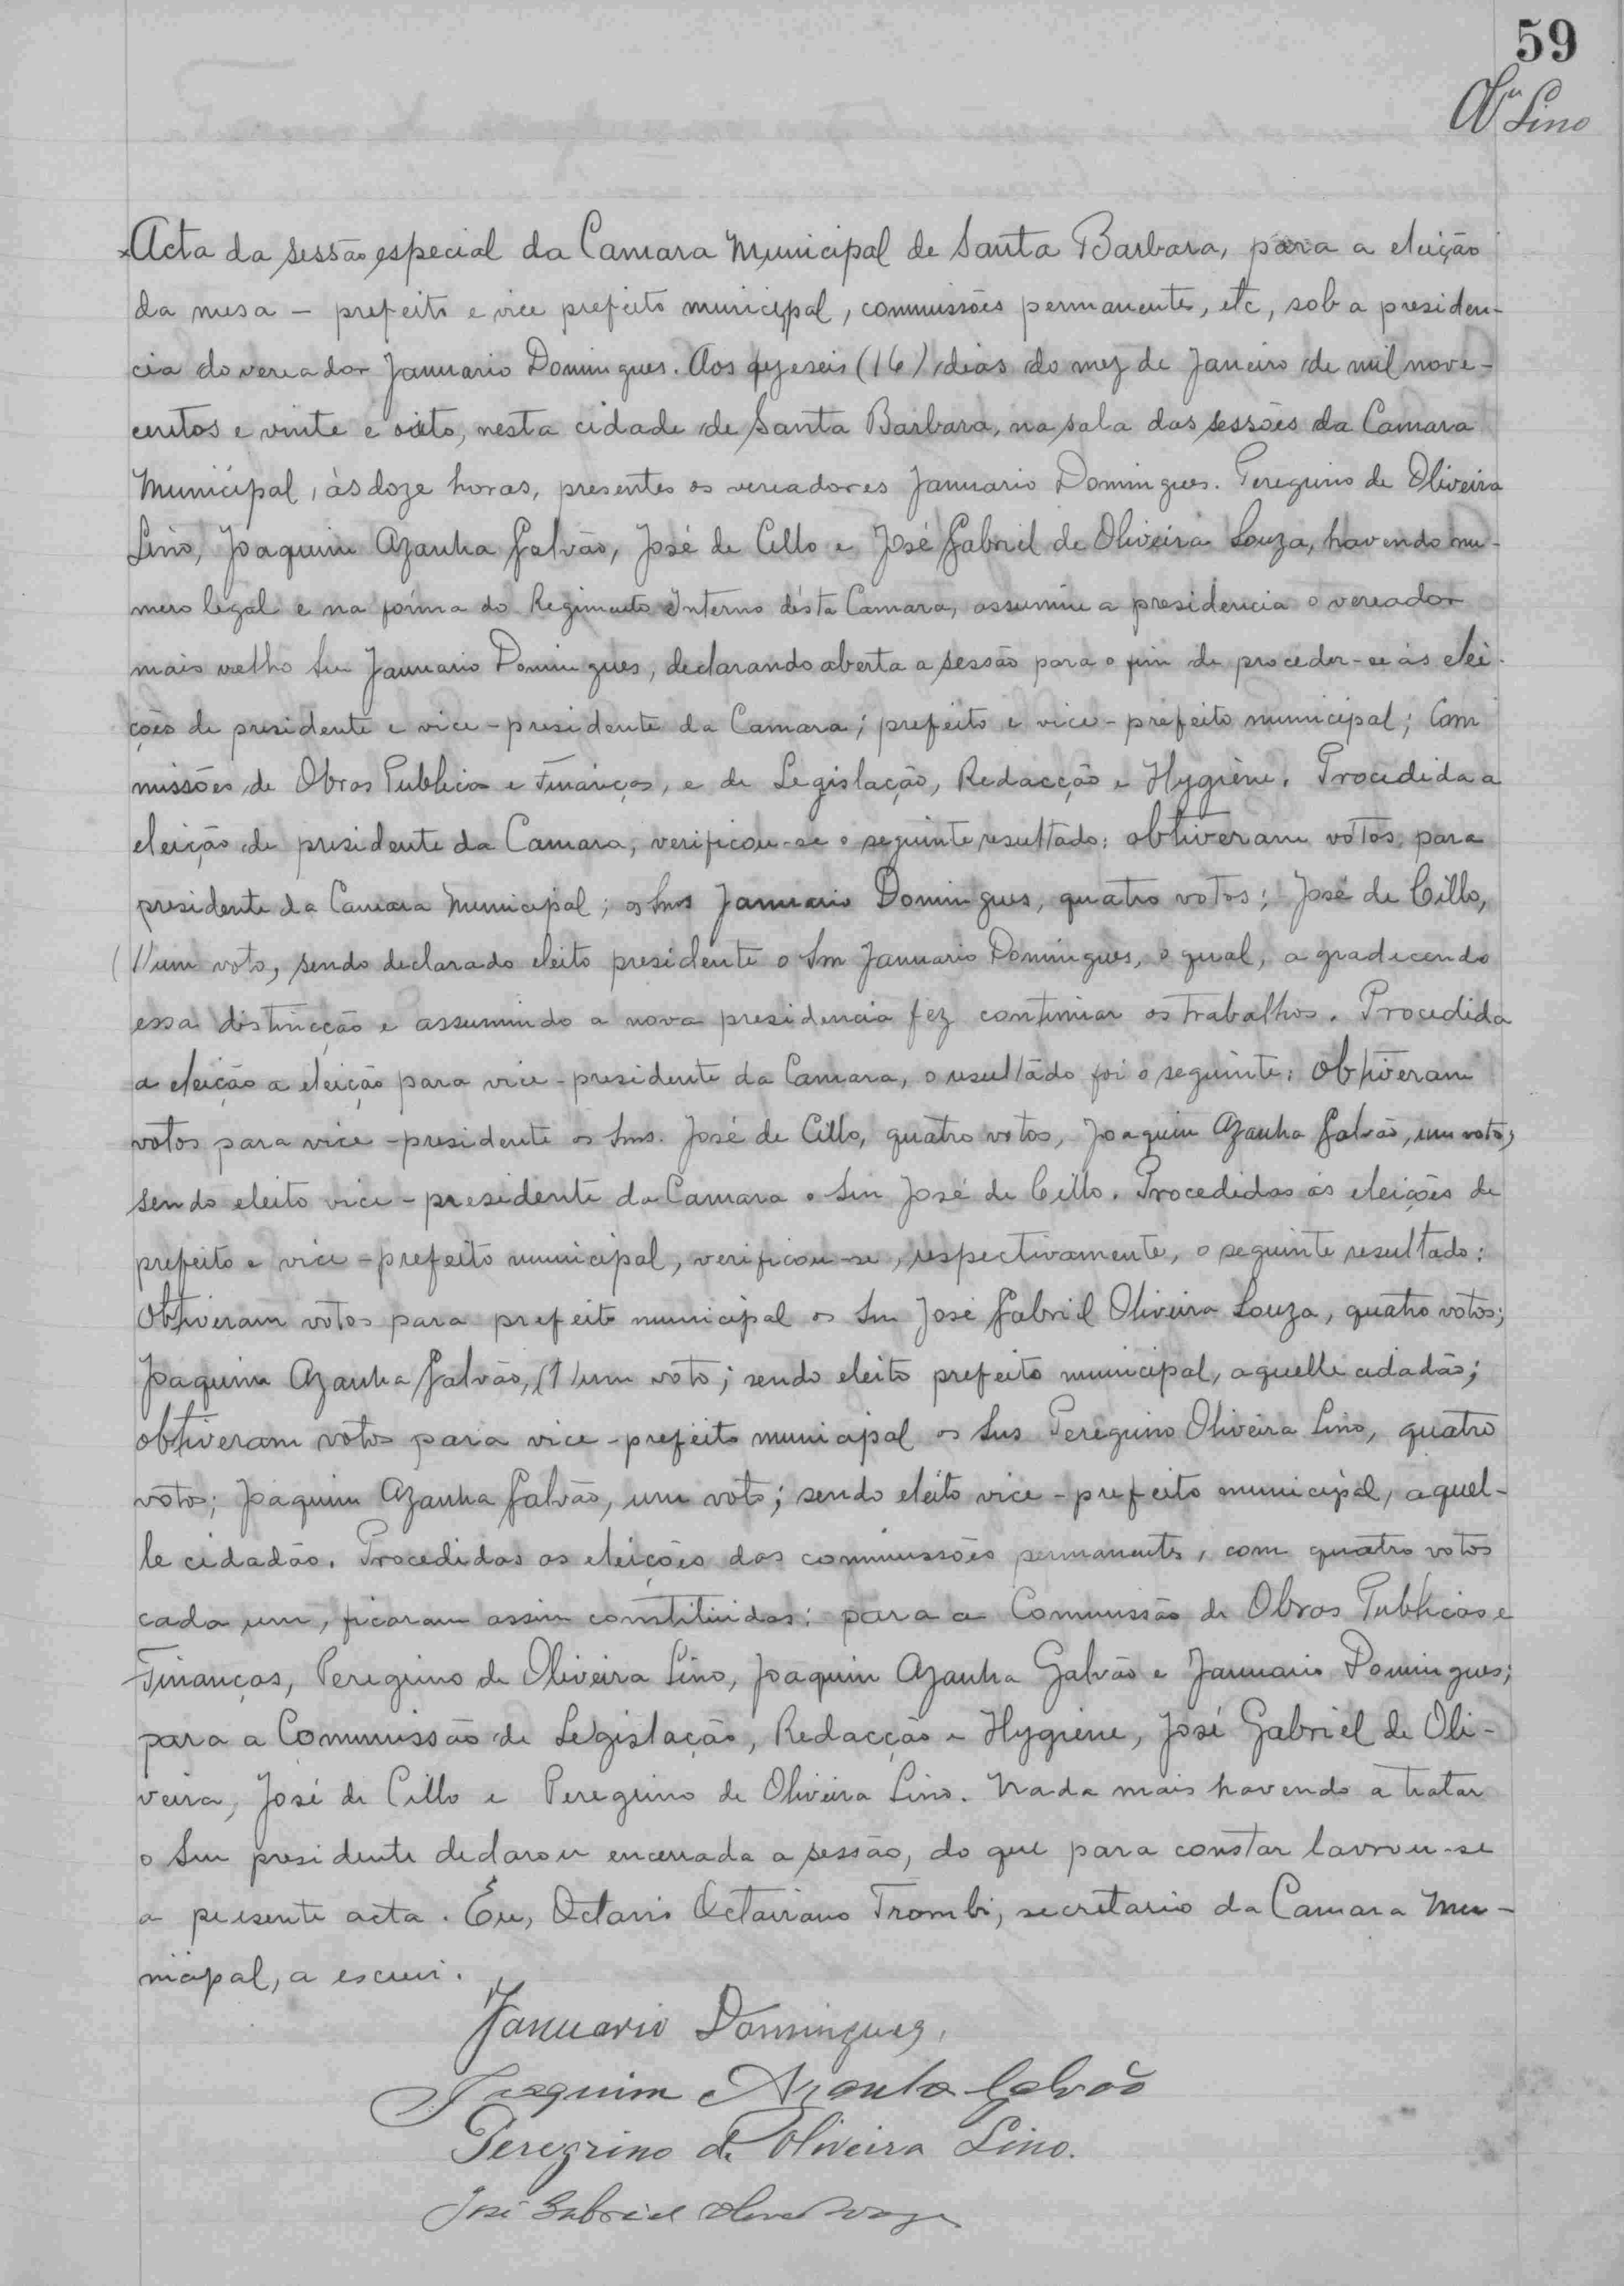 59
Lino
Acta da sessão especial da Camara Municipal de Santa Barbara, para a eleição
da mesa – prefeito e vice prefeito municipal, commissões permanente, etc, sob a presiden-
cia do vereador Januario Domingues. Aos dezeseis (16) dias do mez de Janeiro de mil nove-
centos e vinte e oito, nesta cidade de Santa Barbara, na sala das sessões da Camara
Municipal, às doze horas, presentes os vereadores Januario Domingues. Peregrino de Oliveira
Lino, Joaquim Azanha Galvão, José de Cillo e José Gabriel de Oliveira Souza, havendo nu-
mero legal e na fórma do Regimento Interno désta Camara, assumiu a presidencia o vereador
mais velho Snr Januario Domingues, declarando aberta a sessão para o fim de proceder-se ás elei-
ções de presidente e vice-presidente da Camara; prefeito e vice-prefeito municipal; Com
missões de Obras Publicas e Finanças, e de Legislação, Redacção e Hygiene. Procedida a
eleição de presidente da Camara, verificou-se o seguinte resultado: obtiveram votos para
presidente da Camara Municipal; os Snrs Januario Domingues, quatro votos; José de Cillo,
(1) um voto, sendo declarado eleito presidente o Snr Januario Domingues, o qual, agradecendo
essa distincção e assumindo a nova presidencia fez continuar os trabalhos. Procedida
a eleição a eleição para vice-presidente da Camara, o resultado foi o seguinte: Obtiveram
votos para vice-presidente os Snrs. José de Cillo, quatro votos, Joaquim Azanha Galvão, um voto,
sendo eleito vice-presidente da Camara o Snr José de Cillo. Procedidas ás eleições de
prefeito e vice-prefeito municipal, verificou-se, respectivamente, o seguinte resultado:
Obtiveram votos para prefeito municipal os Snr José Gabriel Oliveira Souza, quatro votos;
Joaquim Azanha Galvão, (1) um voto; sendo eleito prefeito municipal, aquelle cidadão;
obtiveram votos para vice-prefeito municipal os Snrs Peregrino Oliveira Lino, quatro
votos; Joaquim Azanha Galvão, um voto; sendo eleito vice-prefeito municipal, aquel-
le cidadão. Procedidas as eleições das commissões permanentes, com quatro votos
cada um, ficaram assim constituidas: para a Commissão de Obras Publicas e
Finanças, Peregrino de Oliveira Lino, Joaquim Azanha Galvão e Januario Domingues;
para a Commissão de Legislação, Redacção e Hygiene, José Gabriel de Oli-
veira, José de Cillo e Peregrino de Oliveira Lino. Nada mais havendo a tratar
o Snr presidente declarou encerrada a sessão, do que para constar lavrou-se
a presente acta. Eu, Octavio Octaviano Trombi, secretario da Camara Mu-
nicipal, a escrevi.
Januario Domingues,
Joaquim Azanha Galvão
Peregrino de Oliveira Lino.
José Gabriel